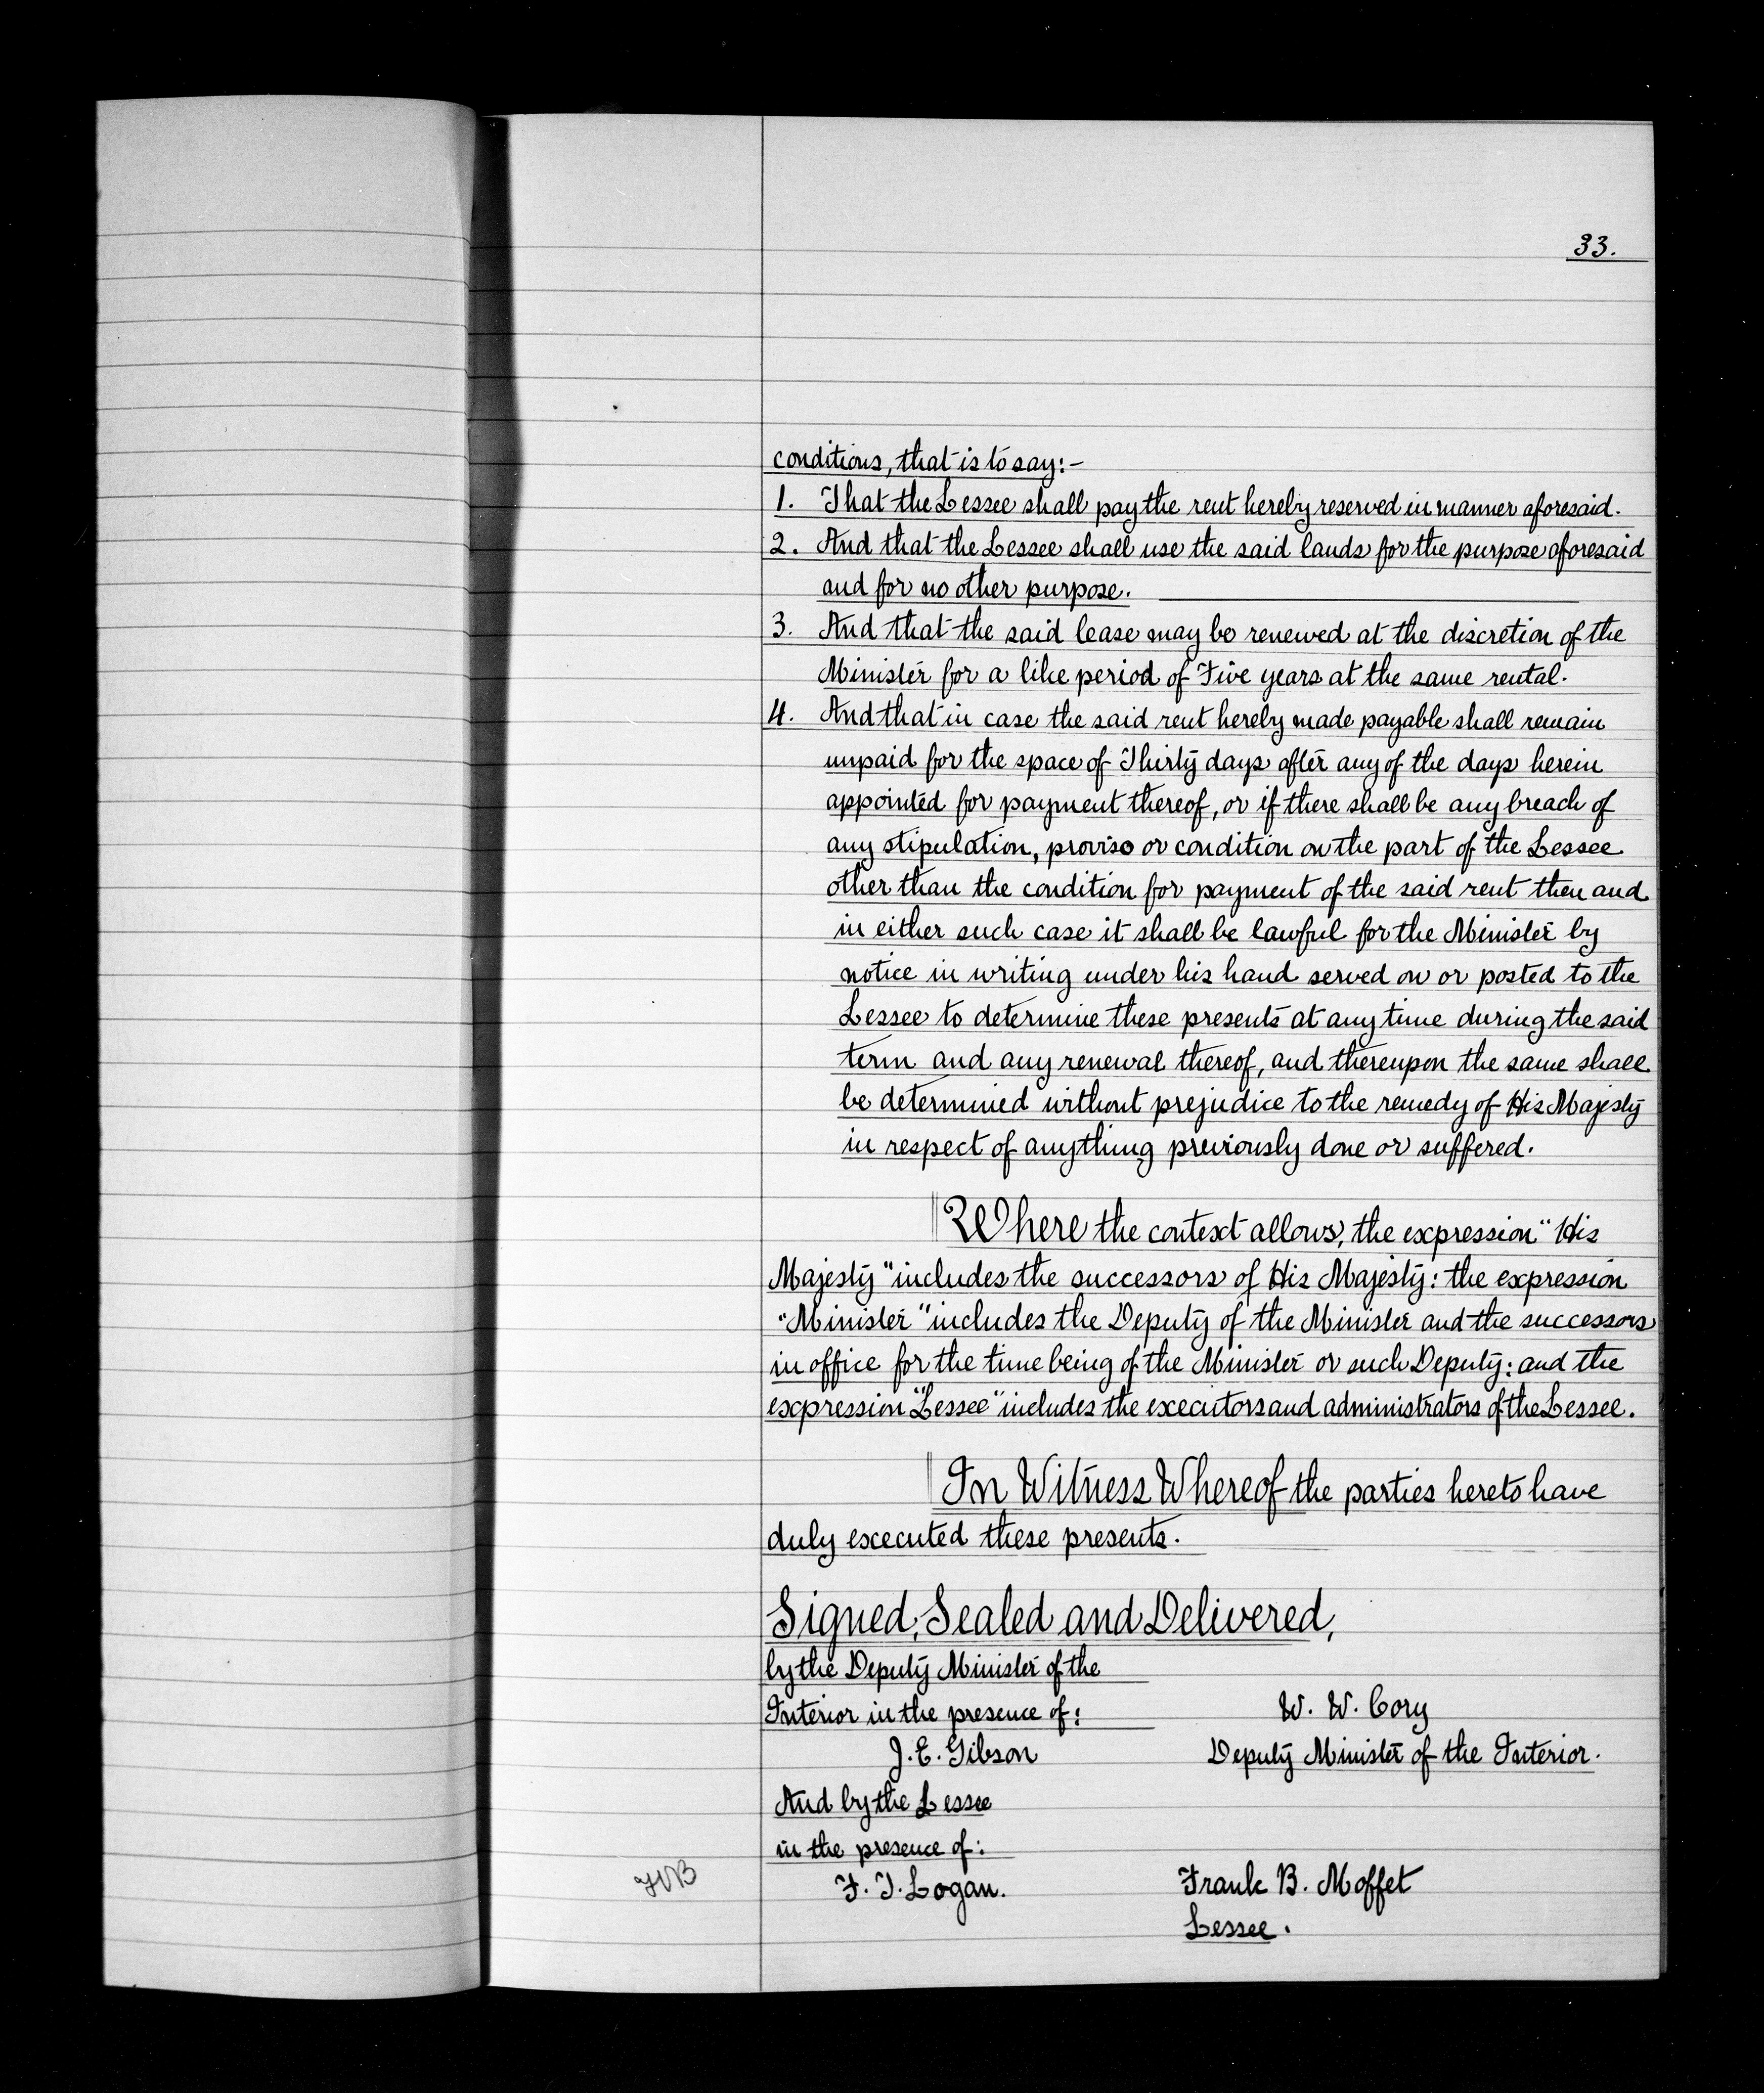 33.
conditions, that is to say:-
1. That the Lessee shall pay the rent hereby reserved in manner aforesaid.
2. And that the Lessee shall use the said lands for the purpose aforesaid
and for no other purpose.
3. And that the said lease may be renewed at the discretion of the
Minister for a like period of Five years at the same rental.
4. And that in case the said rent hereby made payable shall remain
unpaid for the space of Thirty days after any of the days herein
appointed for payment thereof, or if there shall be any breach of
any stipulation, proviso or condition on the part of the Lessee
other than the condition for payment of the said rent then and
in either such case it shall be lawful for the Minister by
notice in writing under his hand served on or posted to the
Lessee to determine these presents at any time during the said
term and any renewal thereof, and thereupon the same shall
be determined without prejudice to the remedy of His Majesty
in respect of anything previously done or suffered.
Where the context allows, the expression "His
Majesty" includes the successors of His Majesty: the expression
"Minister" includes the Deputy of the Minister and the successors
in office for the time being of the Minister or such Deputy: and the
expression "Lessee" includes the executors and administrators of the Lessee.
In Witness Whereof the parties hereto have
duly executed these presents.
Signed, Sealed and Delivered,
by the Deputy Minister of the
Interior in the presence of: W. W. Cory
J. E. Gibson Deputy Minister of the Interior.
And by the Lessee
in the presence of:
F. T. Logan. Frank B. Moffet
Lessee.